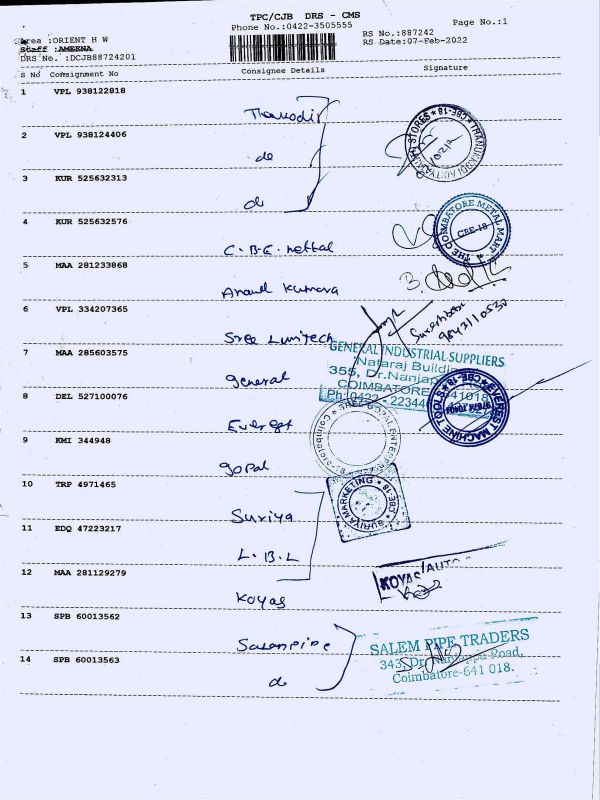 TPC/CJB DRS - CMS
Page No.:1
Phone No.:0422-3505555
Area :ORIENT H W
RS No.:887242
Staff :AMEENA
RS Date:07-Feb-2022
DRS No. :DCJB88724201
S No Consignment No Consignee Details Signature
1 VPL 938122818
2 VPL 938124406 do
3 KUR 525632313 do
CBE-18
4 KUR 525632576 C.B.E. mettal
THE COIMBATORE METAL MART
CBE-18
5 MAA 281233868 Anand Kumara
6 VPL 334207365 Sree Lunitech
Sureshbabu
9843110530
7 MAA 285603575 General
GENERAL INDUSTRIAL SUPPLIERS
Nataraj Building
355, Dr.Nanjap
COIMBATORE 641018
Ph:0422 - 22344
8 DEL 527100076 Everest
EVEREST MACHINE TOOLS CBE-18
9 KMI 344948 gopal
SREE GOPAL ENTERP
Coimbatore
10 TRP 4971465 Suriya
SURIYA MARKETING CBE-18
11 EDQ 47223217 L.B.L
12 MAA 281129279 Koyas
KOYAS/AUTO
13 SPB 60013562 Salempipe
SALEM PIPE TRADERS
343, Dr. Nanjappa Road,
Coimbatore-641 018.
14 SPB 60013563 do